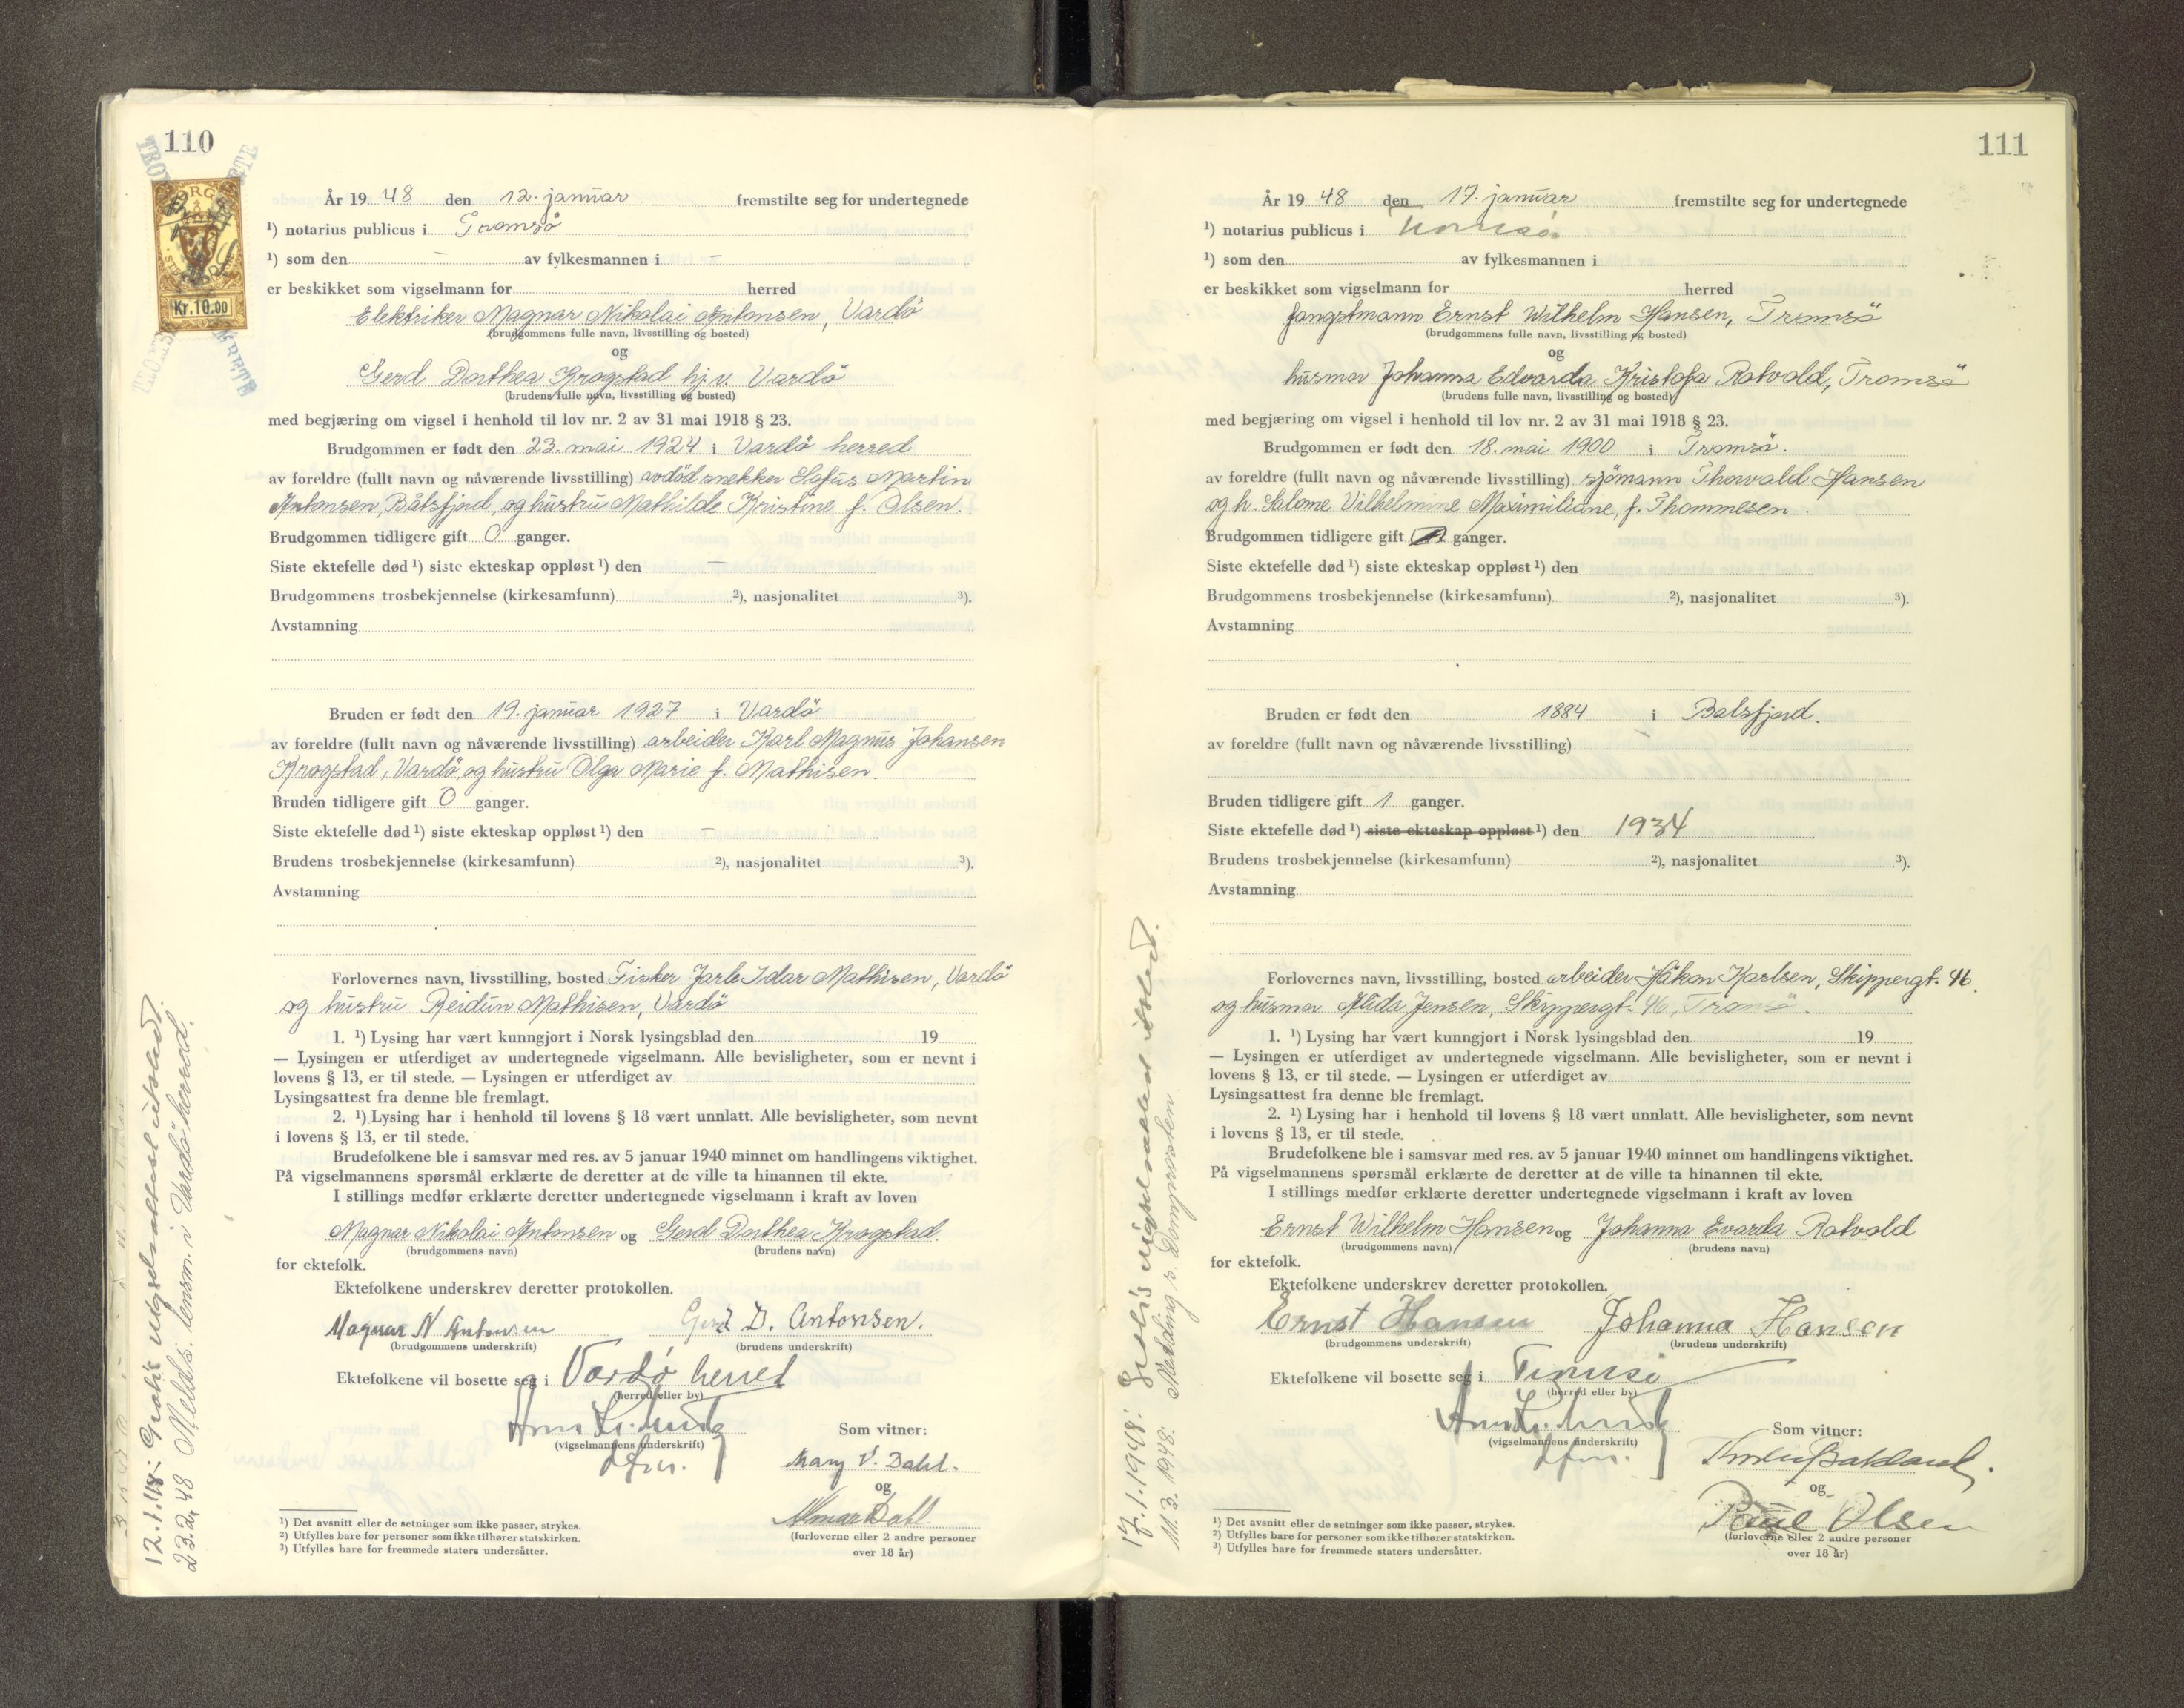 110
NORGE
Kr. 10.00
År 1948 den 12. januar fremstilte seg for undertegnede
¹) notarius publicus i Tromsö
¹) som den – av fylkesmannen i –
er beskikket som vigselmann for herred
Elektriker Magnar Nikolai Antonsen, Vardö
(brudgommens fulle navn, livsstilling og bosted)
og
Gerd Dorthea Krogstad hj.v. Vardö
(brudens fulle navn, livsstilling og bosted)
med begjæring om vigsel i henhold til lov nr. 2 av 31 mai 1918 § 23.
Brudgommen er født den 23. mai 1924 i Vardö herred
av foreldre (fullt navn og nåværende livsstilling) avdöd snekker Sofus Martin
Antonsen, Båtsfjord, og hustru Mathilde Kristine f. Olsen.
Brudgommen tidligere gift 0 ganger.
Siste ektefelle død ¹) siste ekteskap oppløst ¹) den –
Brudgommens trosbekjennelse (kirkesamfunn) ²), nasjonalitet ³).
Avstamning
Bruden er født den 19. januar 1927 i Vardö
av foreldre (fullt navn og nåværende livsstilling) arbeider Karl Magnus Johansen
Krogstad, Vardö, og hustru Olga Marie f. Mathisen.
Bruden tidligere gift 0 ganger.
Siste ektefelle død ¹) siste ekteskap oppløst ¹) den –
Brudens trosbekjennelse (kirkesamfunn) ²), nasjonalitet ³).
Avstamning
Forlovernes navn, livsstilling, bosted Fisker Jarle Idar Mathisen, Vardö
og hustru Reidun Mathisen, Vardö
1. ¹) Lysing har vært kunngjort i Norsk lysingsblad den 19
— Lysingen er utferdiget av undertegnede vigselmann. Alle bevisligheter, som er nevnt i
lovens § 13, er til stede. — Lysingen er utferdiget av
Lysingsattest fra denne ble fremlagt.
2. ¹) Lysing har i henhold til lovens § 18 vært unnlatt. Alle bevisligheter, som nevnt
i lovens § 13, er til stede.
Brudefolkene ble i samsvar med res. av 5 januar 1940 minnet om handlingens viktighet.
På vigselmannens spørsmål erklærte de deretter at de ville ta hinannen til ekte.
I stillings medfør erklærte deretter undertegnede vigselmann i kraft av loven
Magnar Nikolai Antonsen og Gerd Dorthea Krogstad.
(brudgommens navn) (brudens navn)
for ektefolk.
Ektefolkene underskrev deretter protokollen.
Magnar N Antonsen Gerd D. Antonsen.
(brudgommens underskrift) (brudens underskrift)
Ektefolkene vil bosette seg i Vardö herred
(herred eller by)
(vigselmannens underskrift)
Som vitner:
Mary V. Dahl.
og
Almar Dahl
(forloverne eller 2 andre personer
over 18 år)
¹) Det avsnitt eller de setninger som ikke passer, strykes.
²) Utfylles bare for personer som ikke tilhører statskirken.
³) Utfylles bare for fremmede staters undersåtter.
12.1.48: Gratis vigselsattest utstedt.
23.2.48 Meldt. lensm. i Vardö herred.
111
År 1948 den 17. januar fremstilte seg for undertegnede
¹) notarius publicus i Tromsö
¹) som den av fylkesmannen i
er beskikket som vigselmann for herred
fangstmann Ernst Wilhelm Hansen, Tromsö
(brudgommens fulle navn, livsstilling og bosted)
og
husmor Johanna Edvarda Kristofa Rotvold, Tromsö
(brudens fulle navn, livsstilling og bosted)
med begjæring om vigsel i henhold til lov nr. 2 av 31 mai 1918 § 23.
Brudgommen er født den 18. mai 1900 i Tromsö.
av foreldre (fullt navn og nåværende livsstilling) sjömann Thorvald Hansen
og h. Salome Vilhelmine Maximiliane, f. Thommesen.
Brudgommen tidligere gift ganger.
Siste ektefelle død ¹) siste ekteskap oppløst ¹) den
Brudgommens trosbekjennelse (kirkesamfunn) ²), nasjonalitet ³).
Avstamning
Bruden er født den 1884 i Balsfjord.
av foreldre (fullt navn og nåværende livsstilling)
Bruden tidligere gift 1 ganger.
Siste ektefelle død ¹) siste ekteskap oppløst ¹) den 1934
Brudens trosbekjennelse (kirkesamfunn) ²), nasjonalitet ³).
Avstamning
Forlovernes navn, livsstilling, bosted arbeider Håkon Karlsen, Skippergt. 46.
og husmor Alida Jensen, Skippergt. 46, Tromsö.
1. ¹) Lysing har vært kunngjort i Norsk lysingsblad den 19
— Lysingen er utferdiget av undertegnede vigselmann. Alle bevisligheter, som er nevnt i
lovens § 13, er til stede. — Lysingen er utferdiget av
Lysingsattest fra denne ble fremlagt.
2. ¹) Lysing har i henhold til lovens § 18 vært unnlatt. Alle bevisligheter, som nevnt
i lovens § 13, er til stede.
Brudefolkene ble i samsvar med res. av 5 januar 1940 minnet om handlingens viktighet.
På vigselmannens spørsmål erklærte de deretter at de ville ta hinannen til ekte.
I stillings medfør erklærte deretter undertegnede vigselmann i kraft av loven
Ernst Wilhelm Hansen og Johanna Evarda Rotvold
(brudgommens navn) (brudens navn)
for ektefolk.
Ektefolkene underskrev deretter protokollen.
Ernst Hansen Johanna Hansen
(brudgommens underskrift) (brudens underskrift)
Ektefolkene vil bosette seg i Tromsö
(herred eller by)
(vigselmannens underskrift)
Som vitner:
og
Paul Olsen
(forloverne eller 2 andre personer
over 18 år)
¹) Det avsnitt eller de setninger som ikke passer, strykes.
²) Utfylles bare for personer som ikke tilhører statskirken.
³) Utfylles bare for fremmede staters undersåtter.
17.1.1948: Gratis vigselsattest utstedt.
11.3.1948: Melding s. Domprosten